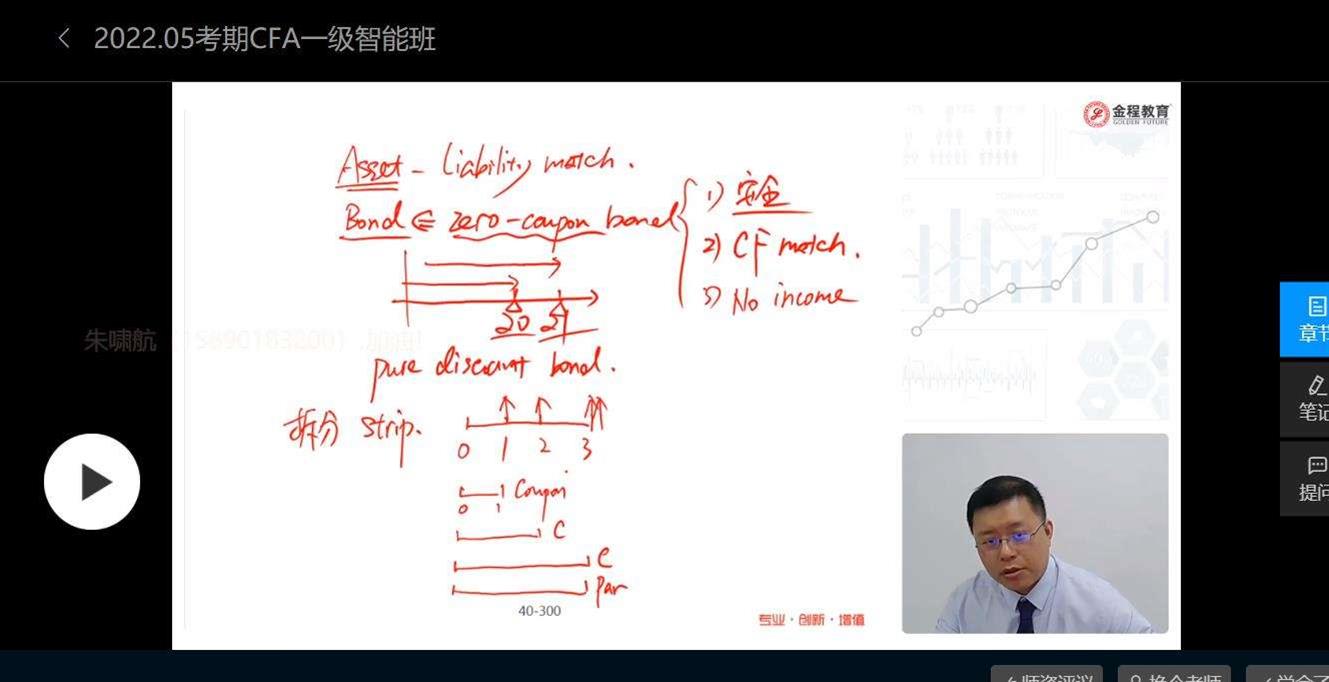 2022.05考期CFA一级智能班
金程教育
GOLDEN FUTURE
Asset - Liability match.
Bond ⋲ zero-coupon bond
1) 安全
2) CF match.
3) No income
20 21
pure discount bond.
拆分 Strip.
0 1 2 3
Coupon
0 1
C
C
Par
40-300
专业·创新·增值
朱啸航
章节
笔记
提问
师资评议
换个老师
学会了